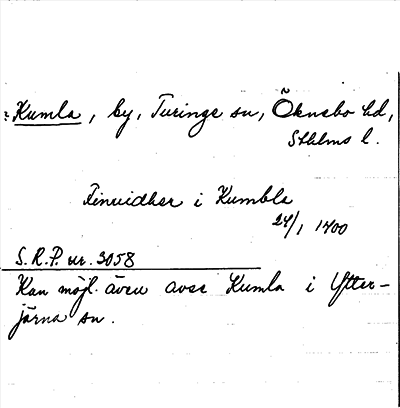 Kumla, by, Turinge sn, Öknebo hd,
Sthlms l.
Finvidher i Kumbla
24/1 1400
S.R.P. nr. 3058
Kan möjl. även avse Kumla i Ytter-
järna sn.